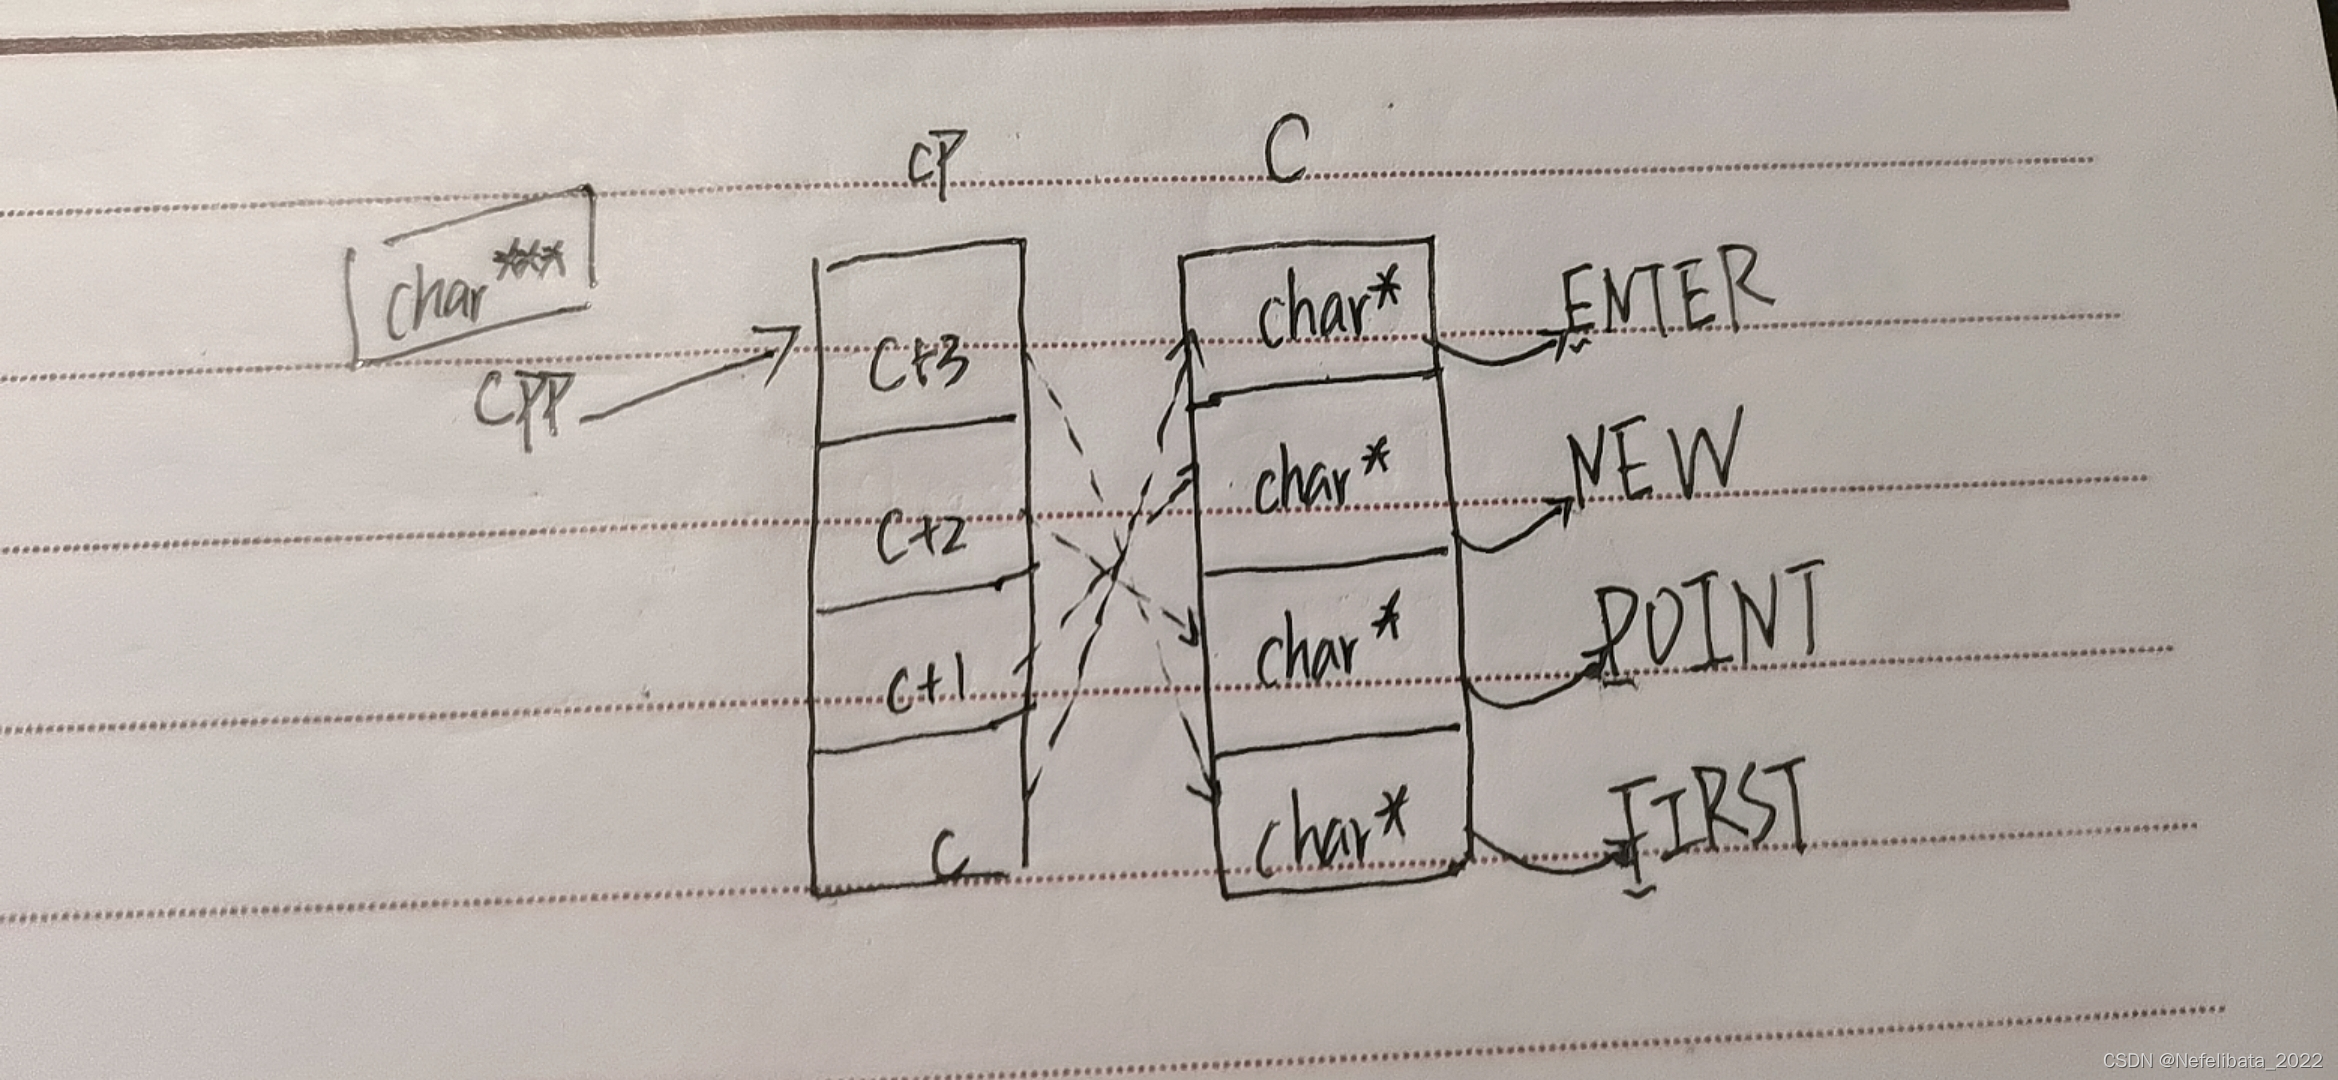 CP C
char***
CPP
C+3 char* ENTER
C+2 char* NEW
C+1 char* POINT
C char* FIRST
CSDN @Nefelibata_2022